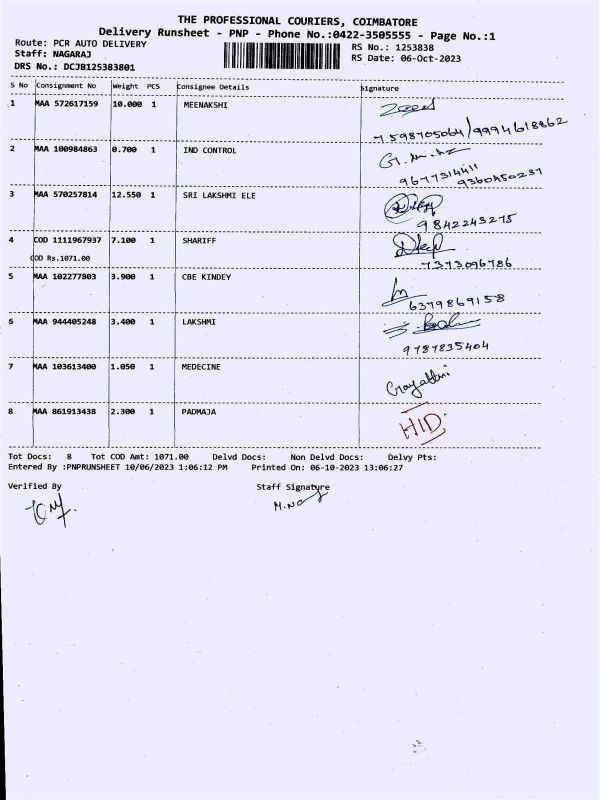 THE PROFESSIONAL COURIERS, COIMBATORE
Delivery Runsheet - PNP - Phone No.:0422-3505555 - Page No.:1
Route: PCR AUTO DELIVERY RS No.: 1253838
Staff: NAGARAJ RS Date: 06-Oct-2023
DRS No.: DCJB125383801
S No Consignment No Weight PCS Consignee Details Signature
1 MAA 572617159 10.000 1 MEENAKSHI
7598705064/9994618862
2 MAA 100984863 0.700 1 IND CONTROL
9677314411
9360450237
3 MAA 570257814 12.550 1 SRI LAKSHMI ELE
9842243275
4 COD 1111967937 7.100 1 SHARIFF
COD Rs.1071.00 7373096786
5 MAA 102277803 3.900 1 CBE KINDEY
6379869158
6 MAA 944405248 3.400 1 LAKSHMI
9787835404
7 MAA 103613400 1.050 1 MEDECINE
Gayathri
8 MAA 861913438 2.300 1 PADMAJA
HID.
Tot Docs: 8 Tot COD Amt: 1071.00 Delvd Docs: Non Delvd Docs: Delvy Pts:
Entered By :PNPRUNSHEET 10/06/2023 1:06:12 PM Printed On: 06-10-2023 13:06:27
Verified By Staff Signature